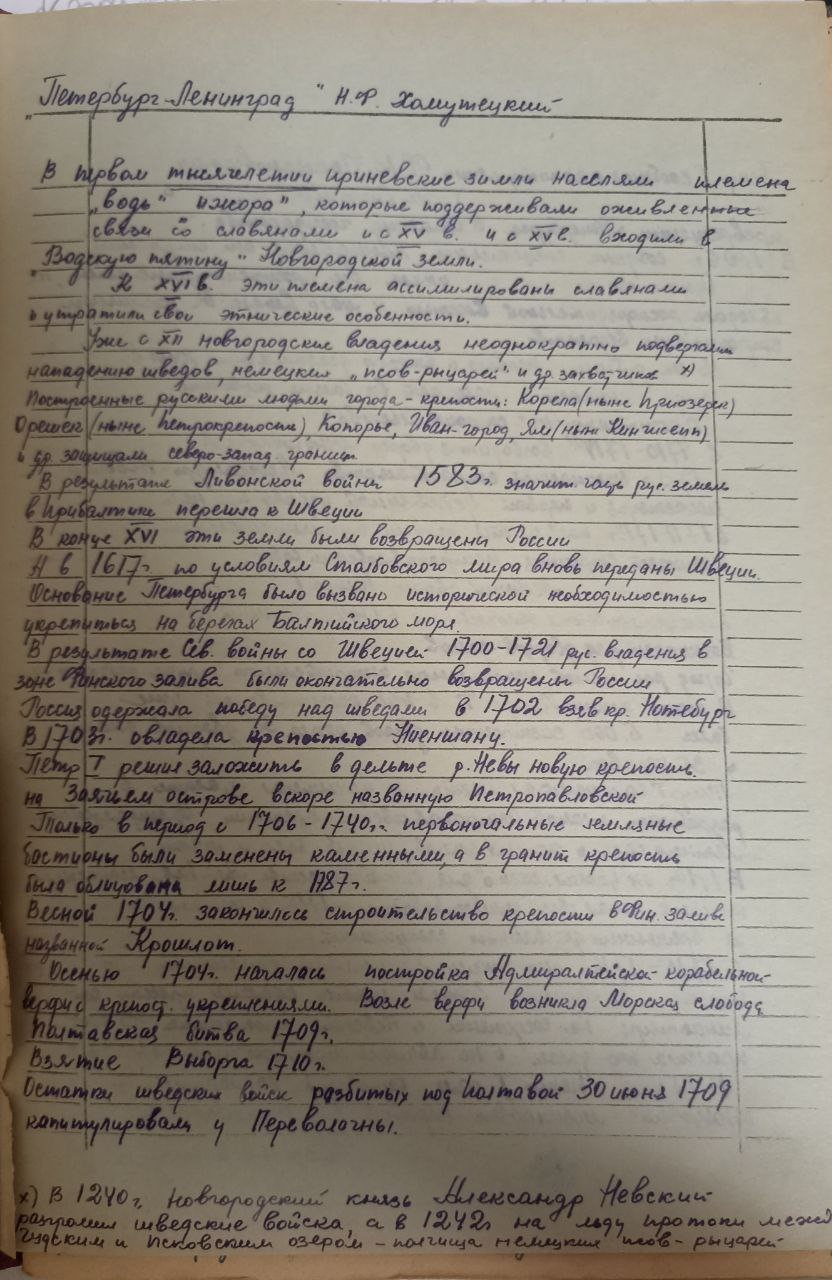 „Петербург-Ленинград" Н.Ф. Хомутецкий
В первом тысячелетии приневские земли населяли племена
„водь" ижора", которые поддерживали оживленные
связи со славянами и с XV в. и с XVв. входили в
„Водскую пятину" Новгородской земли.
К XVI в. эти племена ассимилированы славянами
и утратили свои этнические особенности.
Уже с XII новгородские владения неоднократно подвергались
нападению шведов, немецких „псов-рыцарей" и др. захватчиков х)
Построенные русскими людьми города-крепости: Корела (ныне Приозерск)
Орешек (ныне Петрокрепость), Копорье, Иван-город, Ям (ныне Кингисепп)
и др. защищали северо-запад. границы.
В результате Ливонской войны 1583г. значит. часть рус. земель
в Прибалтике перешла к Швеции
В конце XVI эти земли были возвращены России
А в 1617г. по условиям Столбовского мира вновь переданы Швеции.
Основание Петербурга было вызвано исторической необходимостью
укрепиться на берегах Балтийского моря.
В результате Сев. войны со Швецией 1700-1721 рус. владения в
зоне Финского залива были окончательно возвращены России
Россия одержала победу над шведами в 1702 взяв кр. Нотебург
В 1703г. овладела крепостью Ниеншанц.
Петр I решил заложить в дельте р. Невы новую крепость.
на Заячьем острове вскоре названную Петропавловской
Только в период с 1706-1740г. первоначальные земляные
бастионы были заменены каменными, а в гранит крепость
была облицована лишь к 1787г.
Весной 1704г. закончилось строительство крепости в Фин. заливе
названной Кроншлот.
Осенью 1704г. началась постройка Адмиралтейской корабельной
верфи с крепост. укреплениями. Возле верфи возникла Морская слобода
Полтавская битва 1709г.
Взятие Выборга 1710г.
Остатки шведских войск разбитых под Полтавой 30 июня 1709
капитулировали у Переволочны.
х) В 1240г. Новгородский князь Александр Невский
разгромил шведские войска, а в 1242г на льду протоки между
Чудским и Псковским озером - полчища немецких псов-рыцарей